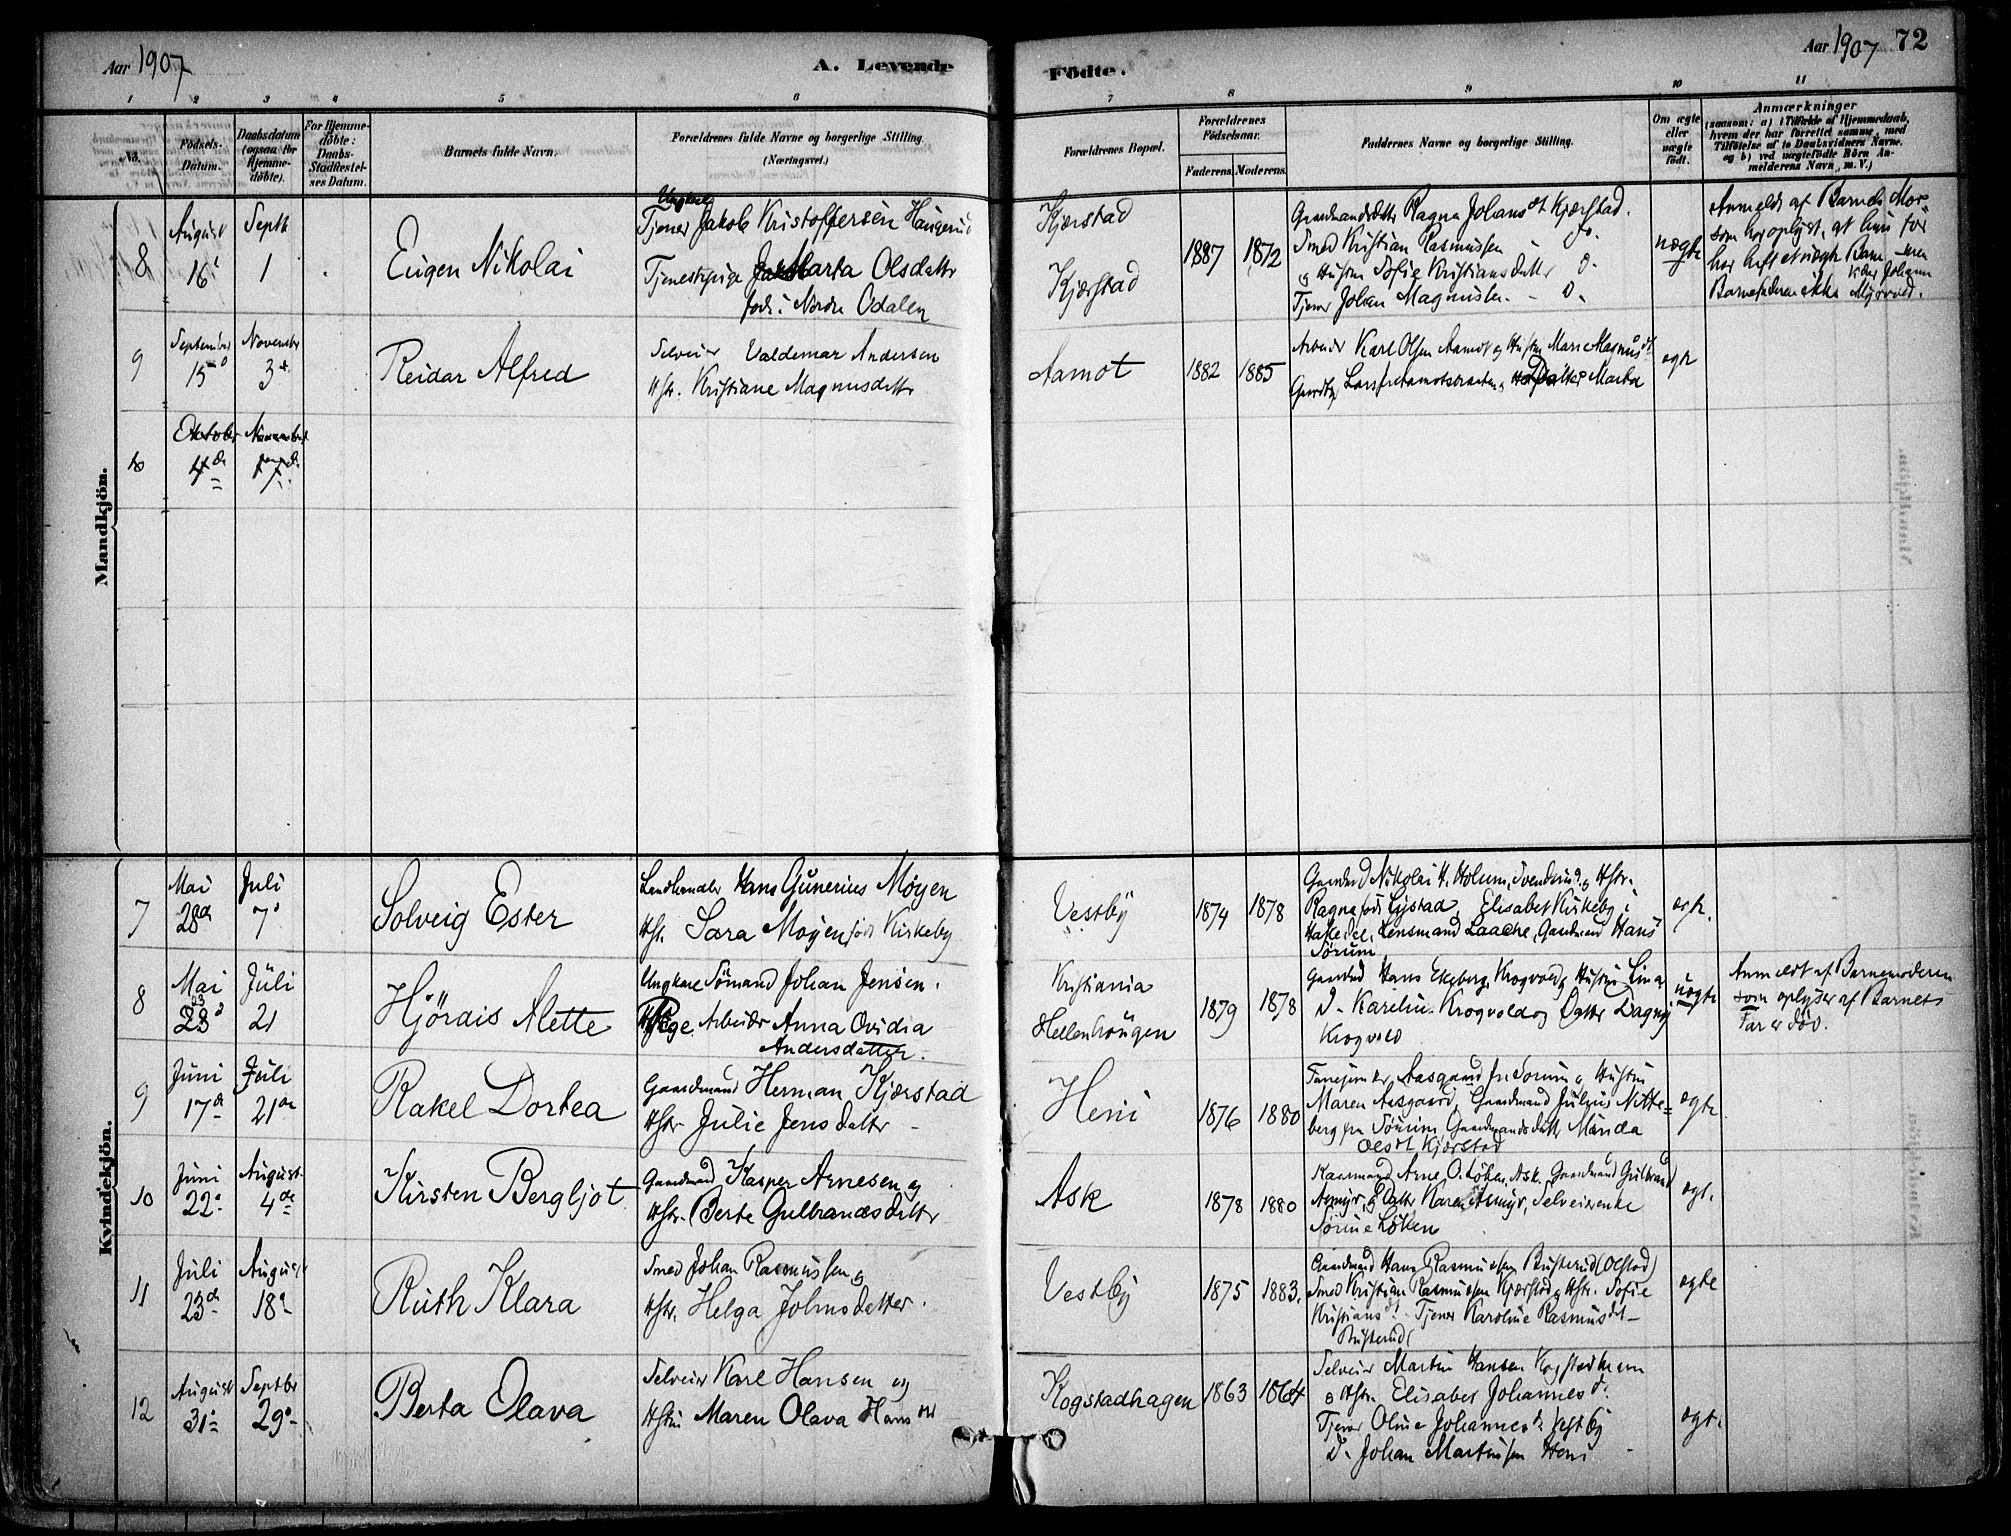 Aar 1907
A. Levende Födte.
Aar 1907 72
1 2 3 4 5 6 7 8 9 10 11
No.
Födsels-
Datum.
Daabsdatum
(ogsaa for
Hjemme-
döbte).
For Hjemme-
döbte:
Daabs-
Stadfæstel-
ses Datum.
Barnets fulde Navn.
Forældrenes fulde Navne og borgerlige Stilling.
(Næringsvei.)
Forældrenes Bopæl.
Forældrenes
Födselsaar.
Faderens.
Moderens.
Faddernes Navne og borgerlige Stilling.
Om ægte
eller
uægte
födt.
Anmærkninger
(saasom: a) i Tilfælde af Hjemmedaab,
hvem der har forrettet samme, med
Tilföielse af to Daabsvidners Navne.
og b) ved uægtefödte Börn An-
melderens Navn, m. V.)
Mandkjön.
8
August
16
Septb
1
Eugen Nikolai
Ungkarl
Tjener Jakob Kristoffersen Haugerud
Tjenestepige Marta Olsdatter
född i Nordre Odalen
Kjærstad
Kjærstad
1887 1872
Gaardmandsdatter Ragna Johansdt Kjærstad.
Smed Kristian Rasmussen - Do.
og Hustru Sofie Kristiansdatter Do.
Tjener Johan Magnussen - Do.
uægte
Anmeldt af Barnets Mor,
som har oplyst, at hun før
har havt et uægte Barn, men
Barnefaderen ikke
9
September
15
November
3
Reidar Alfred
Selveier Valdemar Andersen
Hstr. Kristiane Magnusdatter
Aamot
1882 1885
Arbeider Karl Olsen Aamot og Hustru Marie Magnusdt
Datter Marta
ægte
10
Oktober
4de
November
Kvindekjön.
7
Mai
28de
Juli
7
Solveig Ester
Landhandler Hans Gunerius Møyen
Hst. Sara Møyen født Kirkeby
Vestby
1874 1878
Gaardmd Nikolai H. Holum, Svenderud og Hstr.
Ragna født Lystad, Elisabet Kirkeby i
Lensmand Laache, Gaardmand Hans
Sørum
ægte.
8
Mai
23
Juli
21
Hjørdis Alette
Ungkarl Sømand Johan Jensen.
Pige Arbeider Anna Ovidia
Andersdatter.
Kristiania
Hellenhaugen
1879 1878
Gaardmd Hans Ekeberg, Krogvold og Hustru Lina
Do. Karelius Krogvold og Datter Dagny
Krogvold
uægte
Anmeldt af Barnemoderen
som oplyser af Barnets
Far er död.
9
Juni
17de
Juli
21de
Rakel Dortea
Gaardmand Herman Kjærstad
Hstr Julie Jensdatter
Heni
1876 1880
Aasgaard fr. Sørum og Hustru
Maren Aasgaard, Gaardmand Julius Nitte-
berg fra Sørum, Gaardmandsdatter Manda
Olsdt Kjærstad
ægte
10
Juni
22
August
4de
Kirsten Bergljot
Gaardmand Kasper Arnesen og
Hstr. Berte Gulbrandsdatter
Ask
1878 1880
Kaarmand Arne O. Løken, Ask, Gaardmand Gulbrand
Asmyr og Datter Karen Asmyr, Selveierenke
Sørine Løken
ægt.
11
Juli
23de
August
18
Ruth Klara
Smed Johan Rasmussen og
Hstr. Helga Johnsdatter.
Vestby
1875 1883.
Gaardmand Hans Rasmussen Busterud (Olstad)
Smed Kristian Rasmussen Kjærstad og Hstr. Sofie
Kristiansdt. Tjener Karoline Rasmusdt
Busterud
ægte
12
August
31
Septbr
29
Berta Olava
Selveier Karl Hansen og
Hstru Maren Olava Hansdtt
Kogstadhagen
1863 1864
Selveier Martin Hansen Kogstadhagen
og Hstr. Elisabet Johannesdt.
Tjener Oline Johannesdt Vestby
Do. Johan Martinsen Heni
ægt.